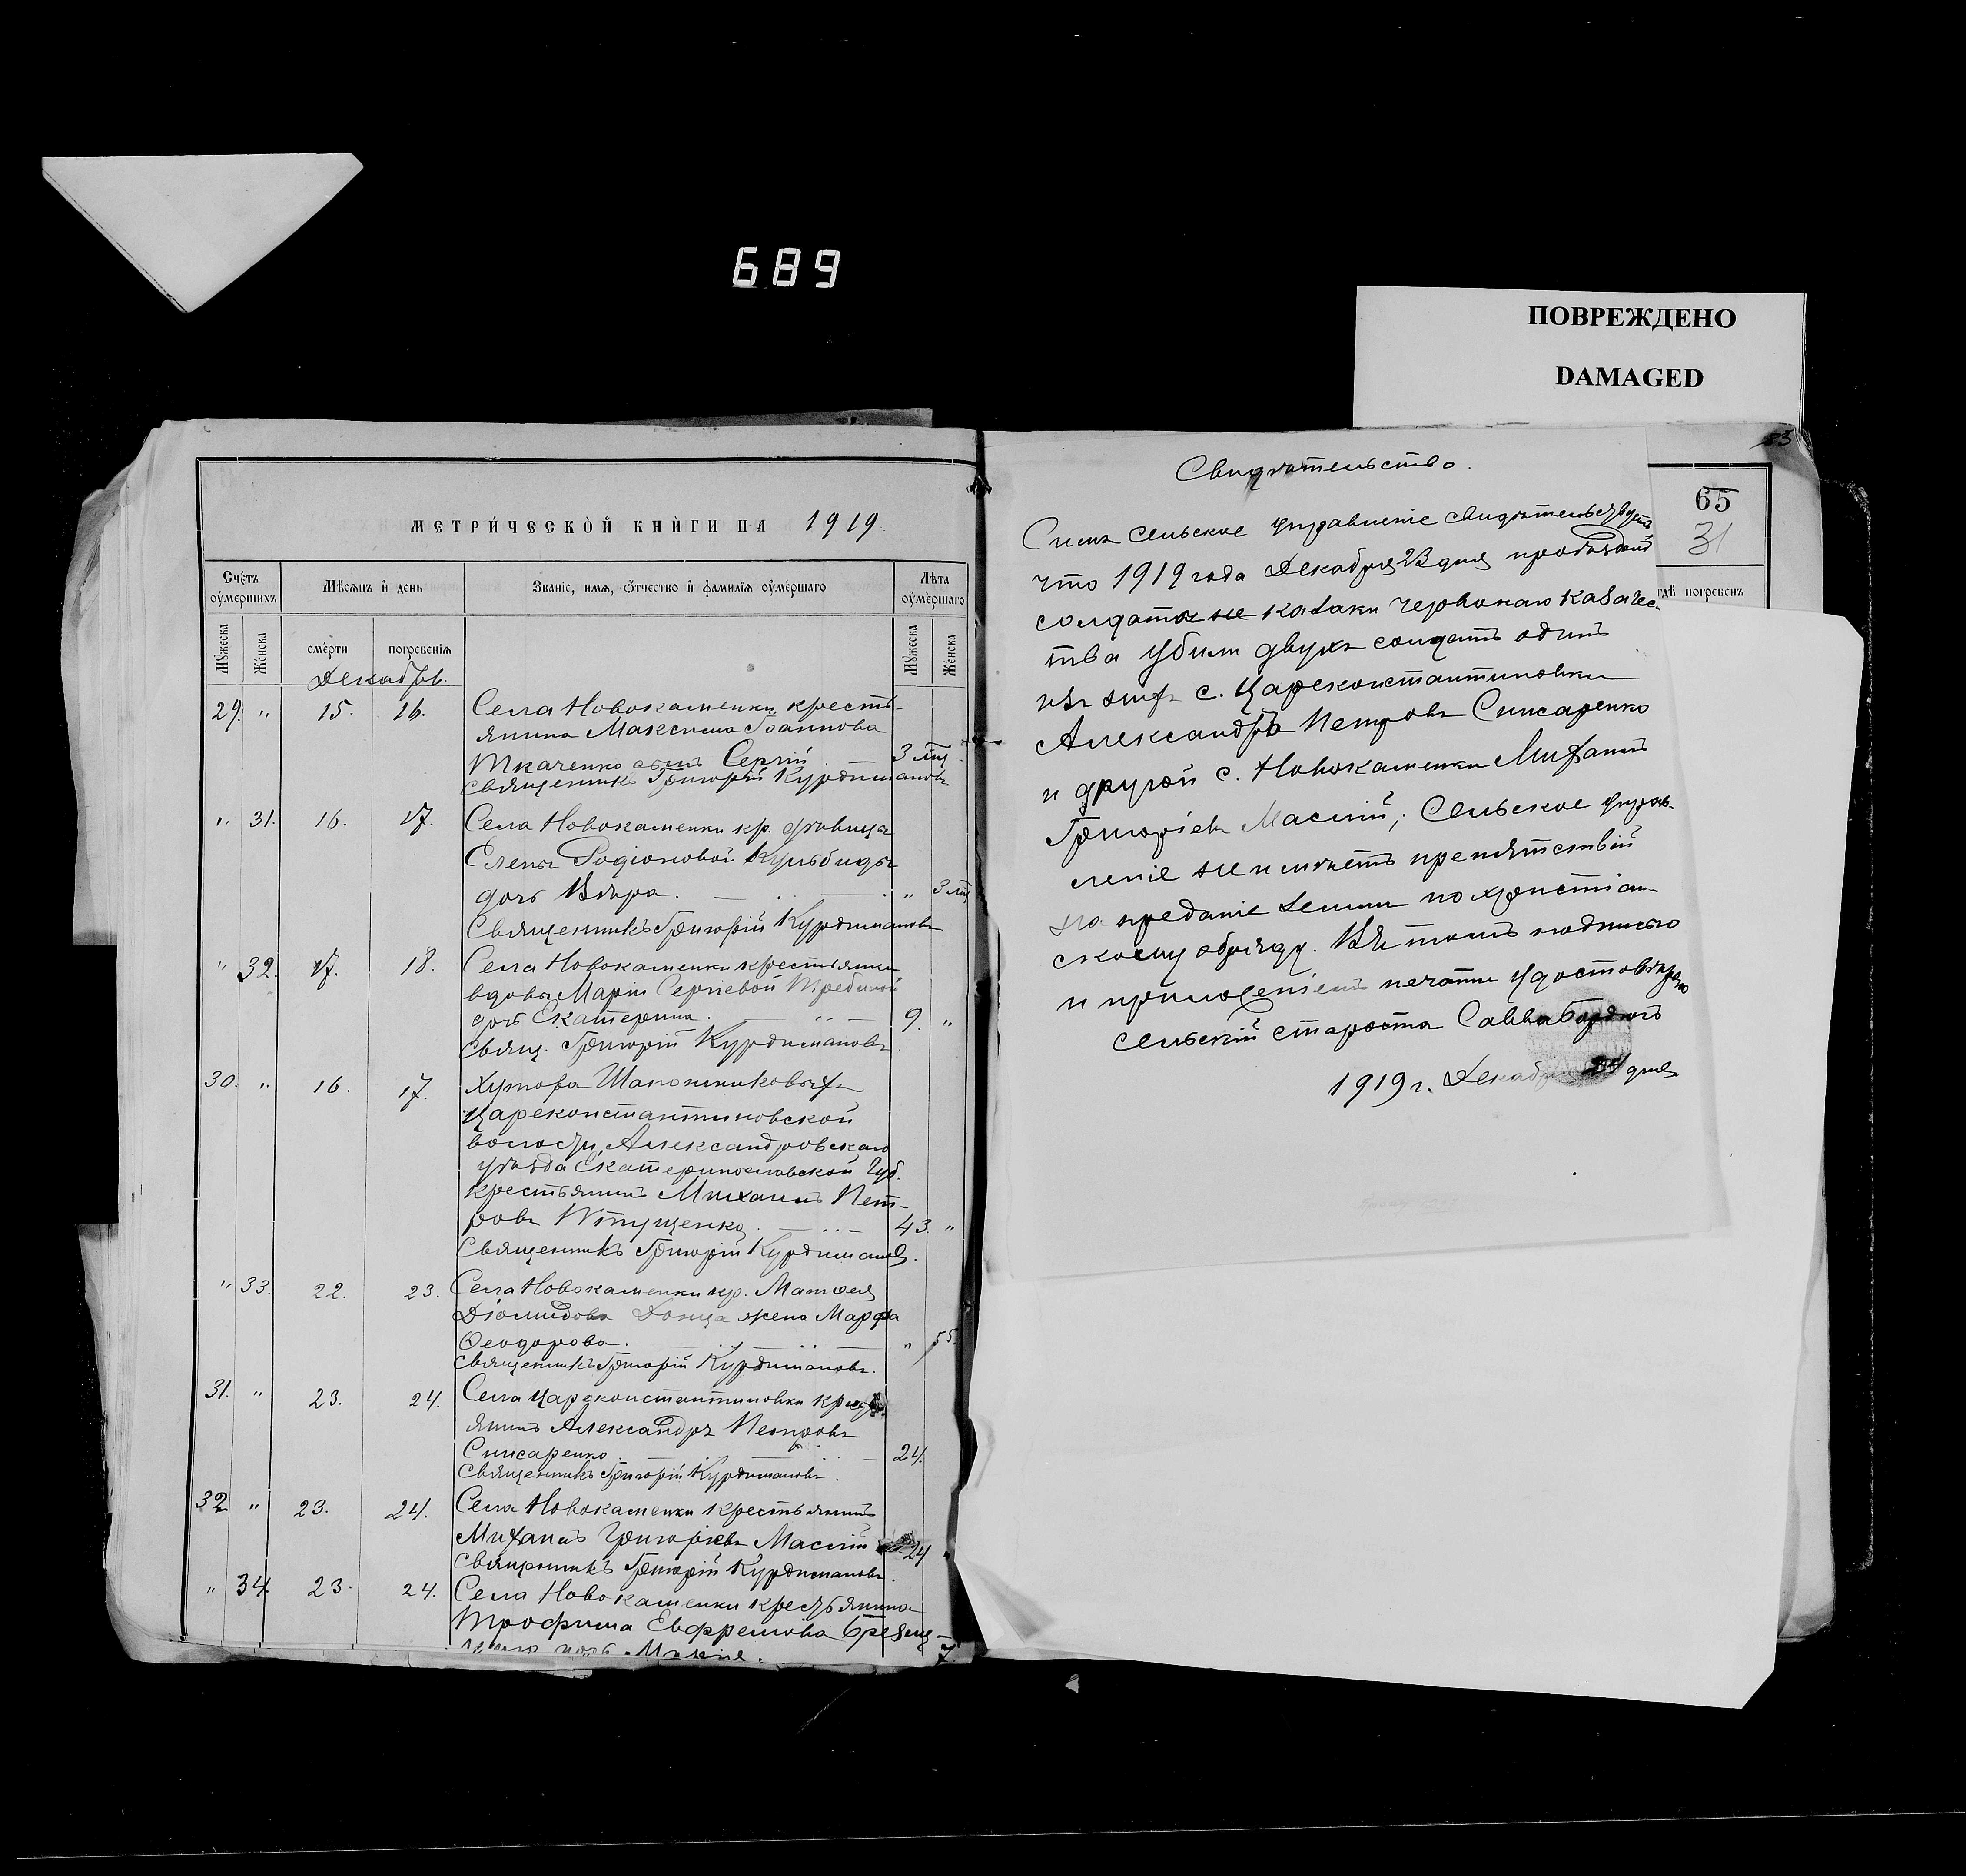 689
ПОВРЕЖДЕНО
DAMAGED
МЕТРИ́ЧЕСКОЙ КНИ́ГИ НА 1919
Сче́тъ ᲂу҆ме́ршихъ
Мѣсяцъ и҆ день
Званіе, имя, ѻ҆́тчество и҆ фамилія ᲂу҆ме́ршаго
Лѣта ᲂу҆ме́ршаго
Мꙋ́жеска
Же́нска
сме́рти
погребе́нія
Мꙋ́жеска
Же́нска
Декабрь.
29. " 15. 16. Села Новокаменки кресть-
янина Максима Іоаннова
Ткаченко сынъ Сергій. 3 лѣт.
Священникъ Григорій Курдимановъ
" 31. 16. 17. Села Новокаменки кр. дѣвицы
Елены Родіоновой Кульбиды
дочь Вѣра. "
Священникъ Григорій Курдимановъ
" 32. 17. 18. Села Новокаменки крестьянки
вдовы Маріи Сергіевой
дочь Екатерина. 9. "
Свящ. Григорій Курдимановъ
30. " 16. 17. Хутора Шапошниковыхъ
Цареконстантиновской
волости, Александровскаго
уѣзда Екатеринославской Губ.
крестьянинъ Михаилъ Пет-
ровъ 43. "
Священникъ Григорій Курдимановъ.
" 33. 22. 23. Села Новокаменки кр. Матѳея
Діомидова Донца жена Марфа
Ѳеодорова. " 55.
Священникъ Григорій Курдимановъ.
31. " 23. 24. Села Цареконстантиновки крест
янинъ Александръ Петровъ
Списаренко 24.
Священникъ Григорій Курдимановъ.
32 " 23. 24. Села Новокаменки крестьянинъ
Михаилъ Григоріевъ Маслій 24 "
Священникъ Григорій Курдимановъ.
" 34. 23. 24. Села Новокаменки крестьянина
Трофима Евфремова
дочь Марія. 7.
83
65
31
гдѣ погребенъ
Свидѣтельство.
Симъ сельское управленіе свидѣтельствуетъ
что 1919 года Декабря 23 дня проѣздомъ
солдаты же казаки червонаго казачес-
тва убили двухъ солдатъ одинъ
изъ нихъ с. Цареконстантиновки
Александръ Петровъ Списаренко
и другой с. Новокаменки Михаилъ
Григоріевъ Маслій; Сельское управ-
леніе не имѣетъ препятствій
на преданіе земли по христіан-
скому обряду. Въ томъ подписью
и приложеніемъ печати удостовѣряю
Сельскій староста Савва
1919 г. Декабря 24 дня